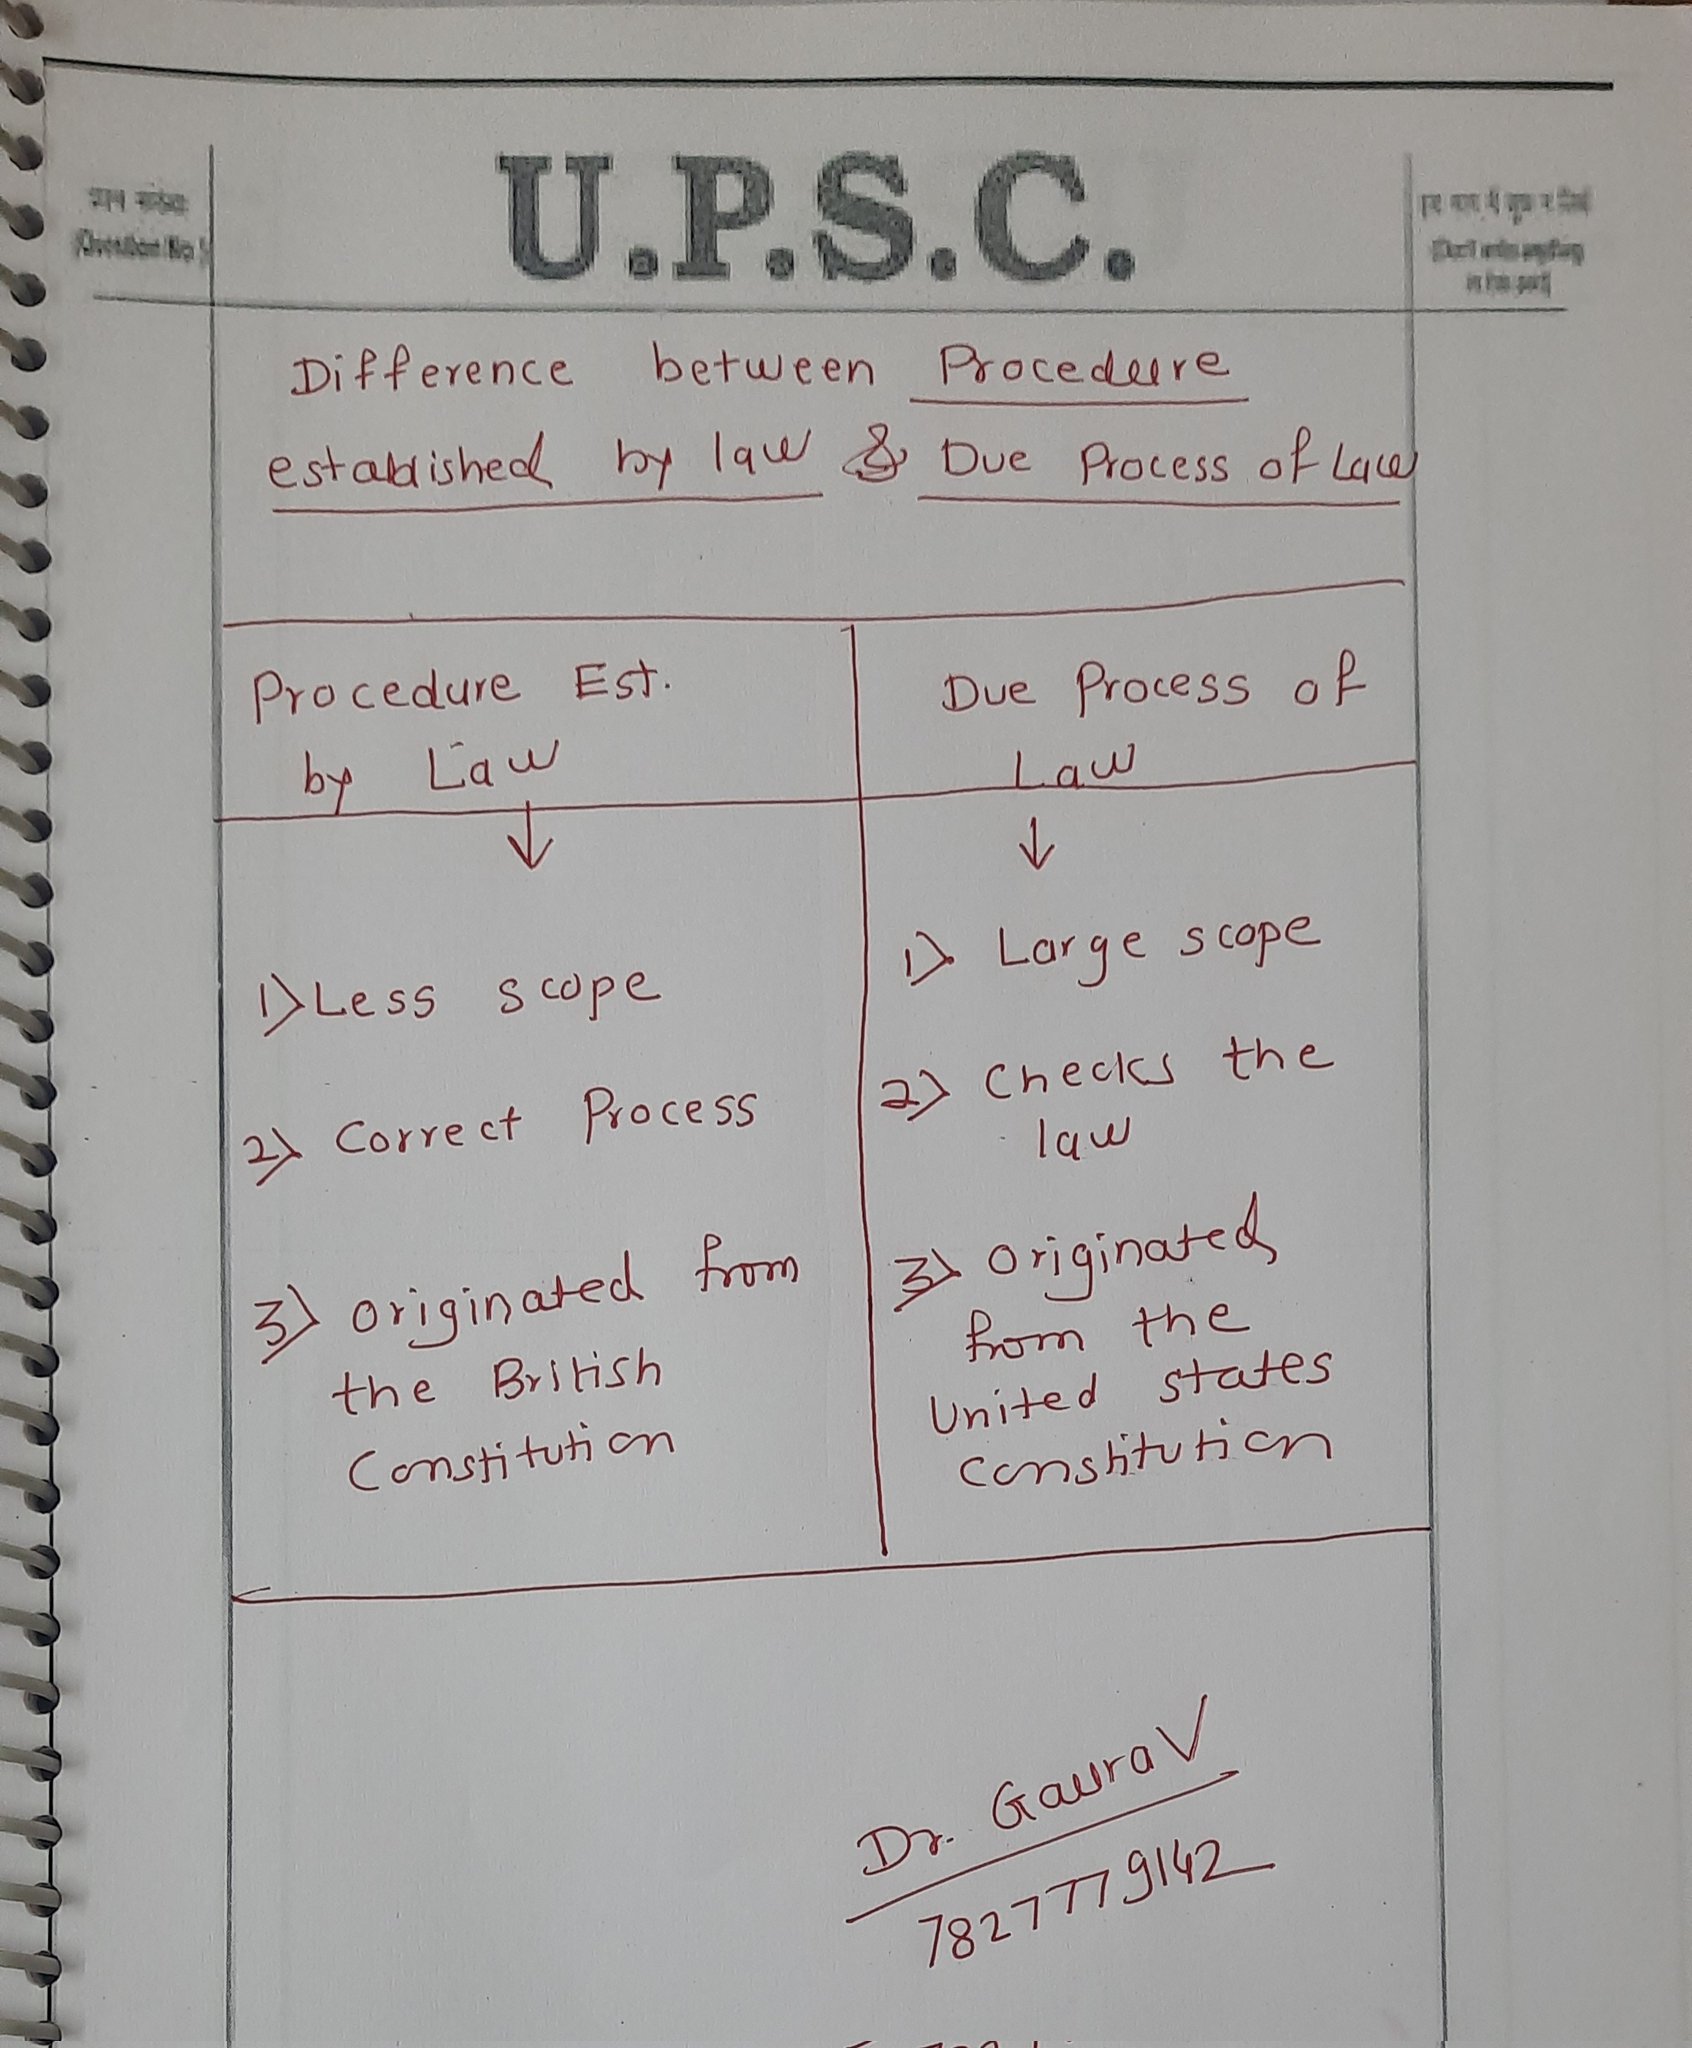 U.P.S.C.
(Question No.)
Difference between Procedure
established by law & Due Process of Law
Procedure Est.
by Law
Due Process of
Law
1) Less scope
2) Correct Process
3) originated from
the British
Constitution
1) Large scope
2) Checks the
law
3) originated
from the
United states
Constitution
Dr. Gaurav
7827779142